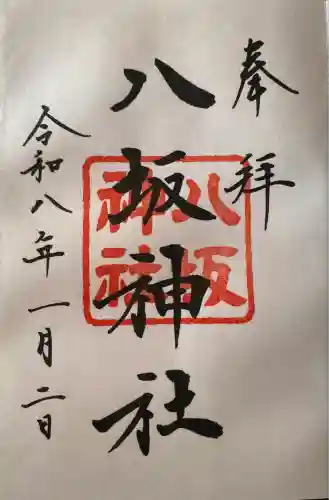 奉拝
八坂神社
八坂
神社
令和八年一月二日